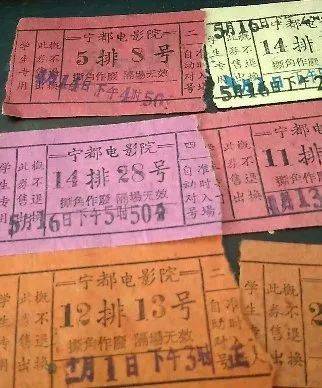 学生专用
此券售出
概不退换
宁都电影院
5排8号
撕角作废 隔场无效
月14日下午4时50
二
自动对
5月16日
14排
5月16日下午
学生专用
此券售出
概不退换
宁都电影院
14排28号
撕角作废 隔场无效
5月16日下午5时50分
四
准时入场
自动对号
学生专用
此券售出
概不退换
11排
撕角作废
月13
学生专用
此券售出
概不退换
宁都电影院
12排13号
撕角作废 隔场无效
月1日下午3时正
二
准时入